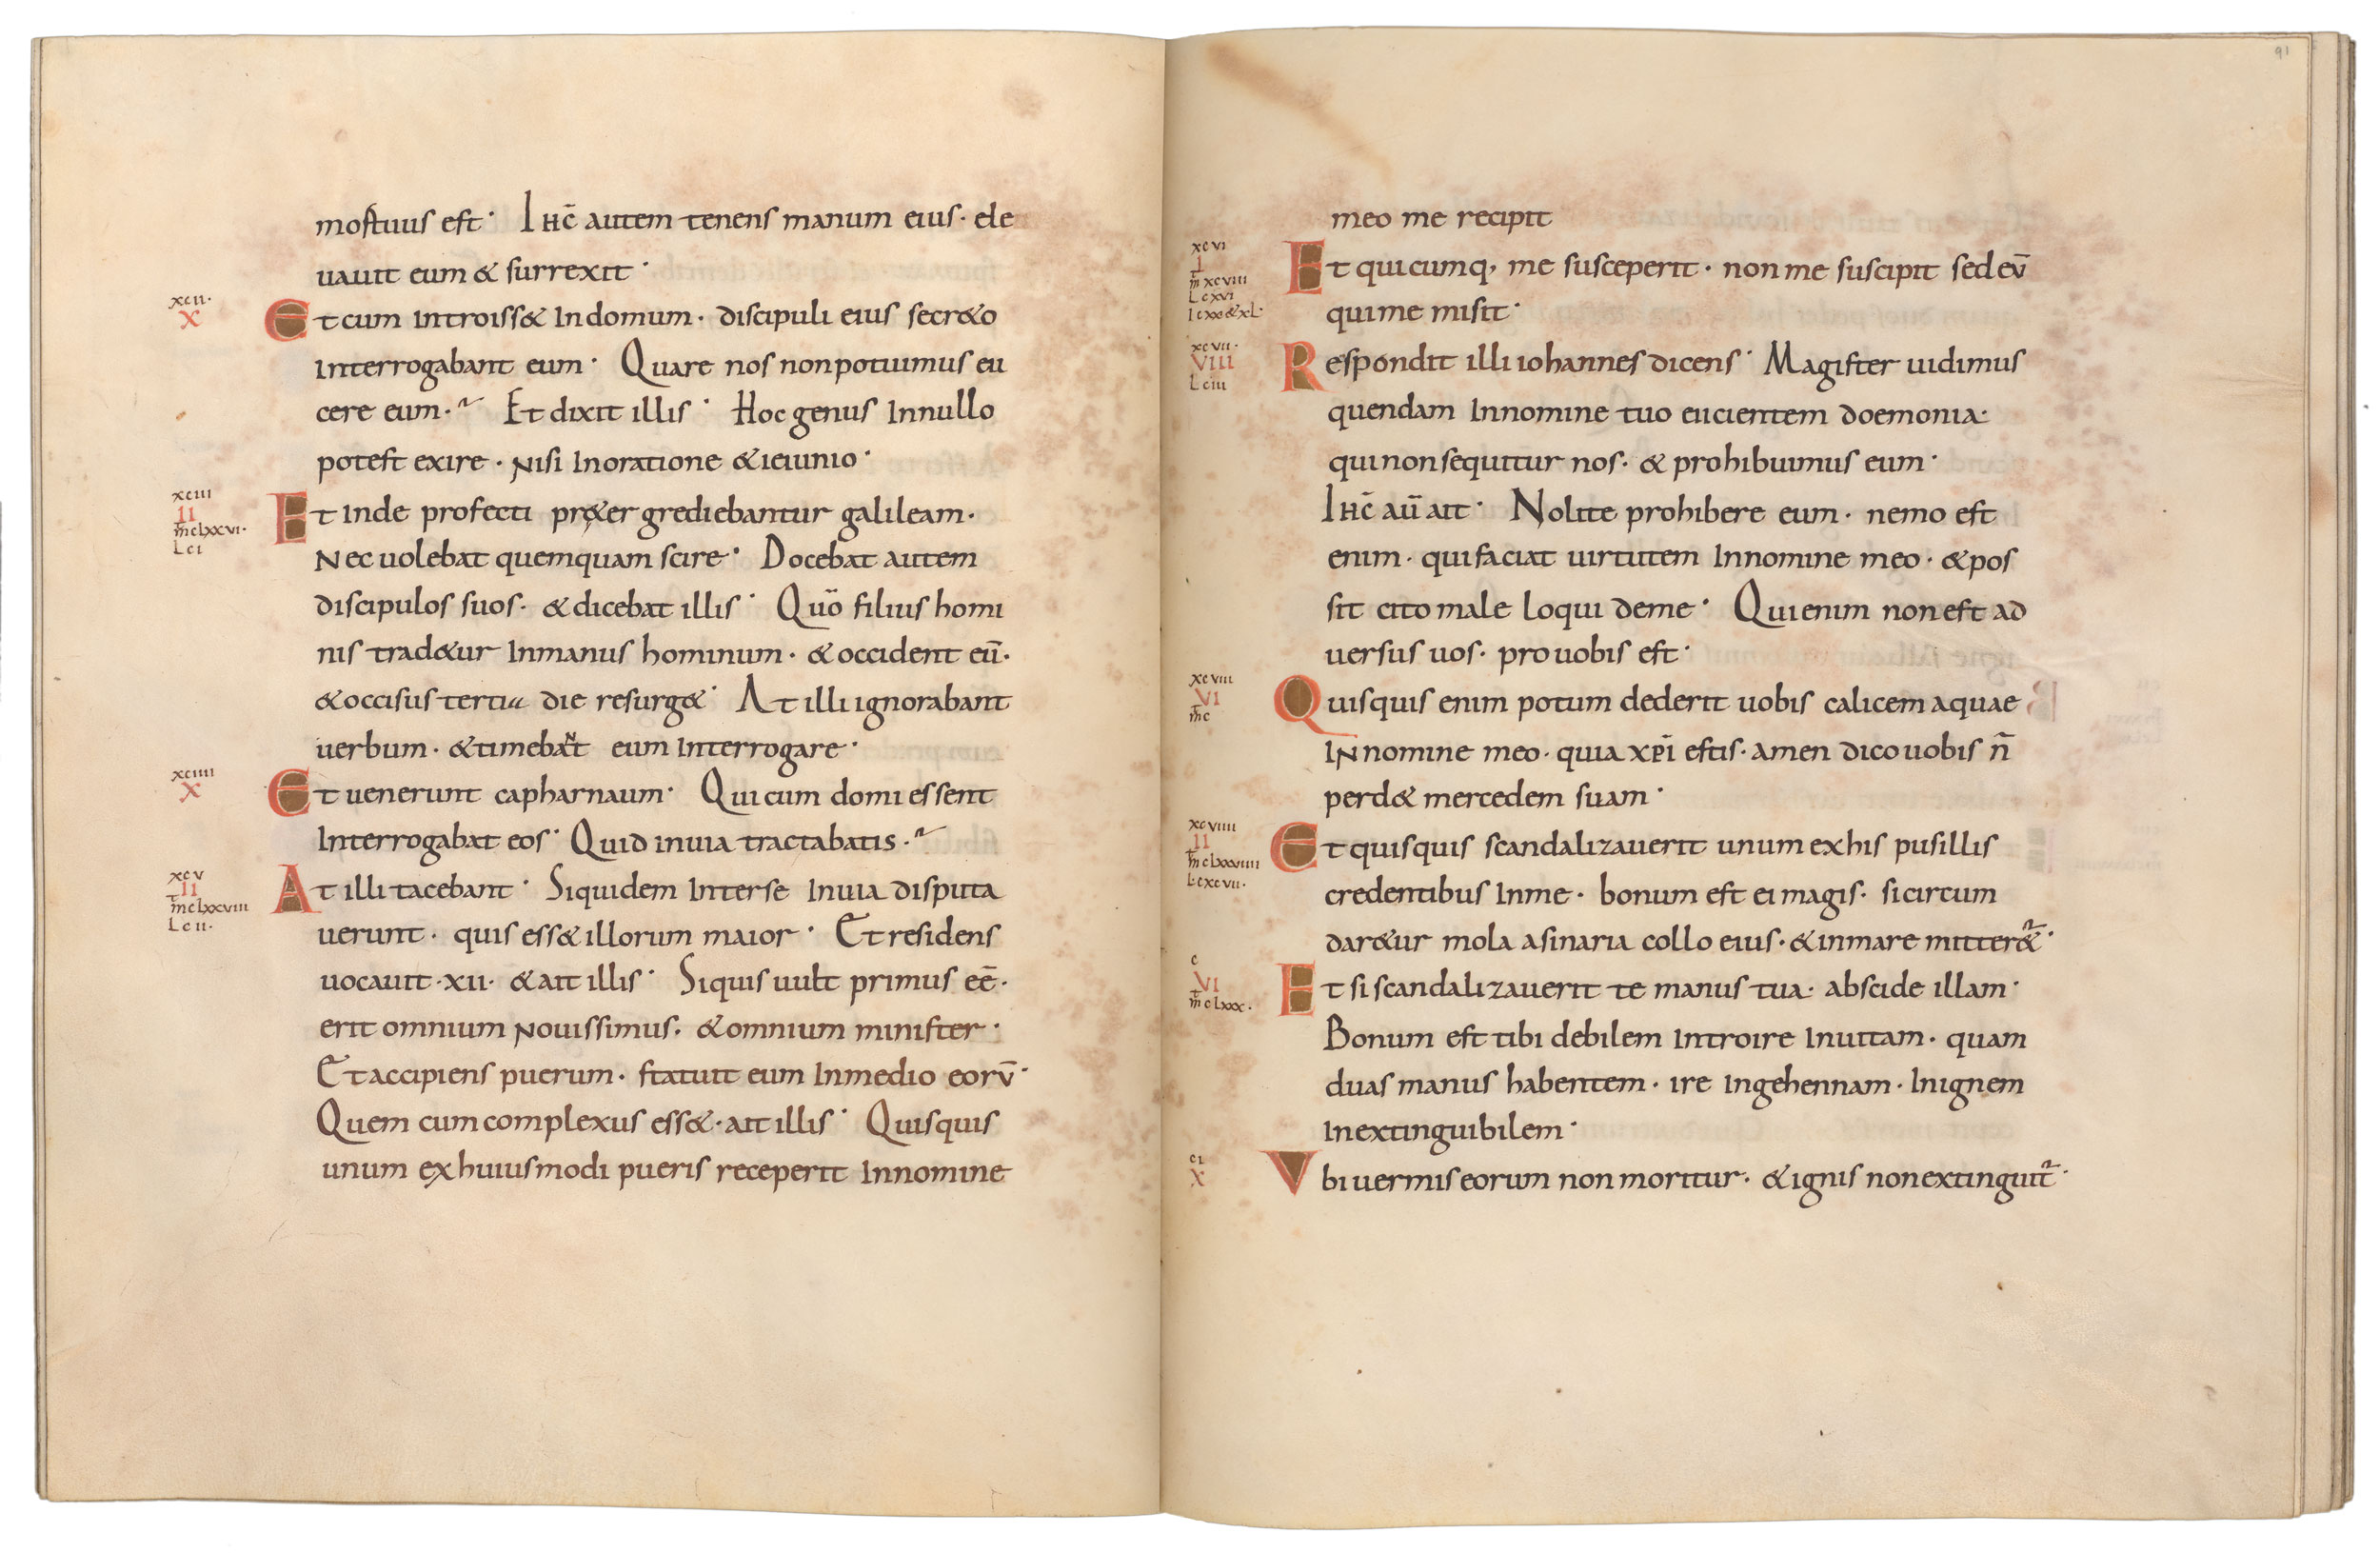 mortuus est· Ihc̄ autem tenens manum eius· ele
uauit eum & surrexit·
xcii·
X
Et cum introiss& in domum· discipuli eius secr&o
interrogabant eum· Quare nos non potuimus eii
cere eum·? Et dixit illis· Hoc genus in nullo
potest exire· nisi in oratione & ieiunio·
xciii
II
m̄ clxxvi·
L ci
Et inde profecti pr&er grediebantur galileam·
Nec uolebat quemquam scire· Docebat autem
discipulos suos· & dicebat illis· Quō filius homi
nis trad&ur in manus hominum· & occident eū·
& occisus tertia die resurg&· At illi ignorabant
uerbum· & timebant eum interrogare·
xciiii
X
Et uenerunt capharnaum· Qui cum domi essent
interrogabat eos· Quid in uia tractabatis·?
xcv
II
m̄ clxxviii
L cii·
At illi tacebant· Siquidem inter se in uia disputa
uerunt· quis ess& illorum maior· Et residens
uocauit·xii· & ait illis· Siquis uult primus eē·
erit omnium nouissimus· & omnium minister·
Et accipiens puerum· statuit eum in medio eorū·
Quem cum complexus ess&· ait illis· Quisquis
unum ex huiusmodi pueris receperit in nomine
91
meo me recipit
xcvi
I
m̄ xcviii
L cxvi
I cxx & xl·
Et quicumq; me susceperit· non me suscipit sed eū
qui me misit·
xcvii·
VIII
L ciii
Respondit illi iohannes dicens· Magister uidimus
quendam in nomine tuo eiicientem doemonia·
qui non sequitur nos· & prohibuimus eum·
Ihc̄ aū ait· Nolite prohibere eum· nemo est
enim· qui faciat uirtutem in nomine meo· & pos
sit cito male loqui de me· Qui enim non est ad
uersus uos· pro uobis est·
xcviii
VI
m̄ c
Quisquis enim potum dederit uobis calicem aquae
in nomine meo· quia xp̄i estis· amen dico uobis n̄
perd& mercedem suam·
xcviiii
II
m̄ clxxviiii
L cxcvii·
Et quisquis scandalizauerit unum ex his pusillis
credentibus in me· bonum est ei magis· si circum
dar&ur mola asinaria collo eius· & in mare mitter&ur·
c
VI
m̄ clxxx·
Et si scandalizauerit te manus tua· abscide illam·
Bonum est tibi debilem introire in uitam· quam
duas manus habentem· ire in gehennam· in ignem
inextinguibilem·
ci
X
Vbi uermis eorum non moritur· & ignis non extinguit̄·